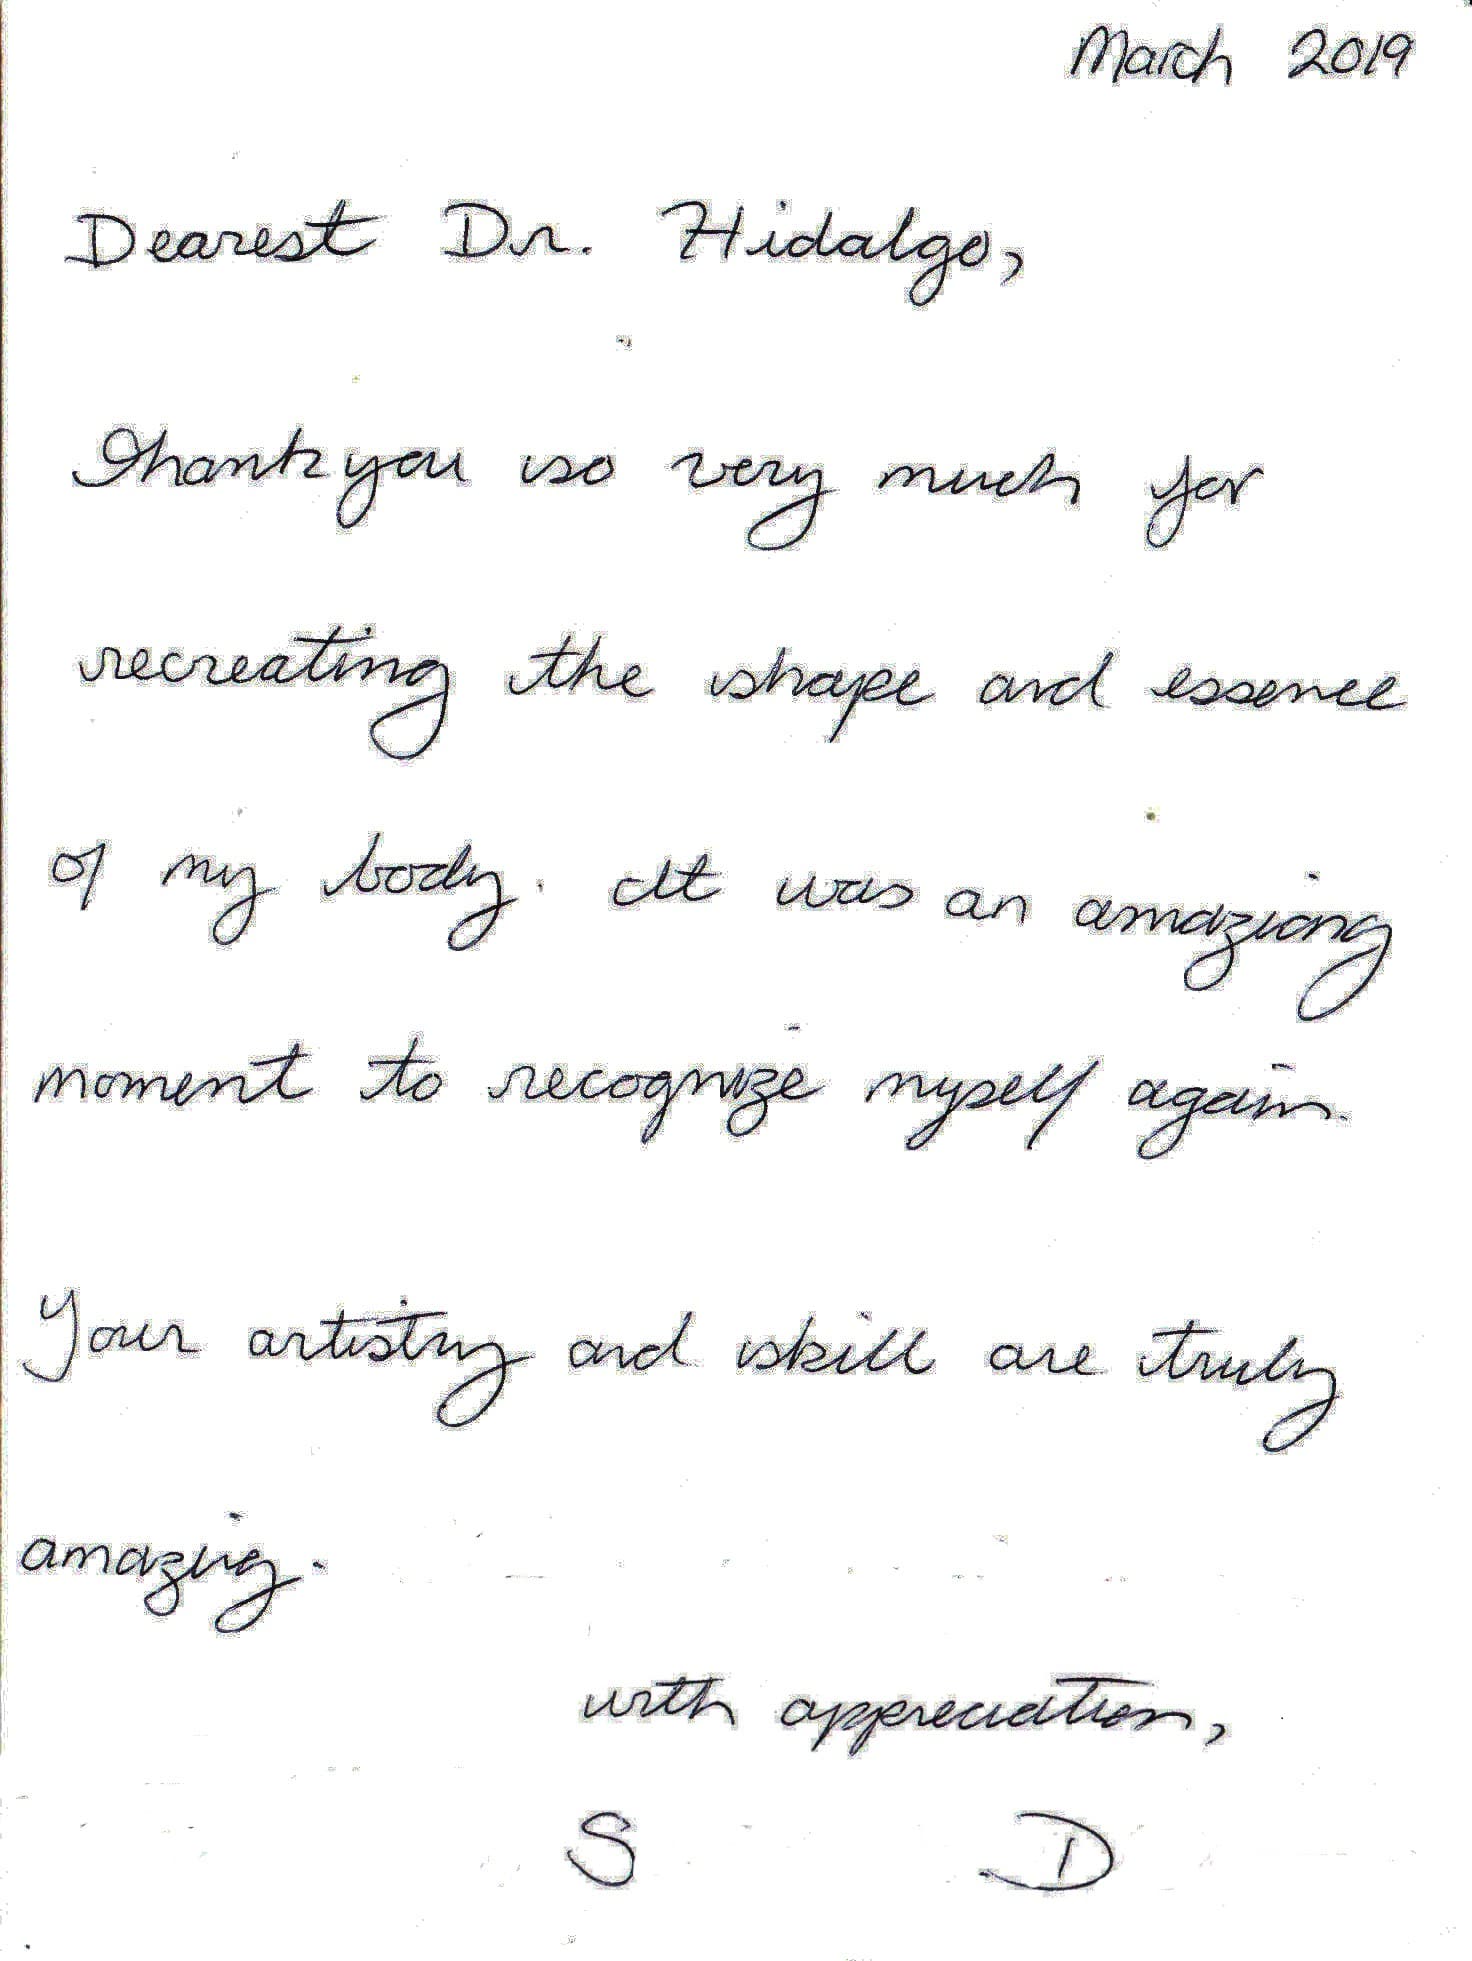 March 2019
Dearest Dr. Hidalgo,
Thank you so very much for
recreating the shape and essence
of my body. It was an amazing
moment to recognize myself again.
Your artistry and skill are truly
amazing.
with appreciation,
S D